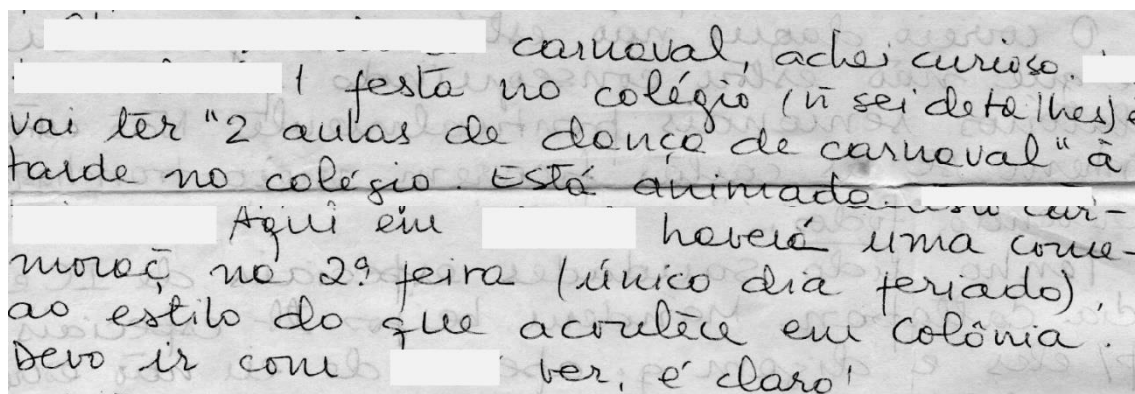 carnaval, achei curioso.
1 festa no colégio (ñ sei detalhes) e
vai ter "2 aulas de dança de carnaval" à
tarde no colégio. Está animada
Aqui em haverá uma come-
moraç̃ na 2ª feira (único dia feriado),
ao estilo do que acontece em Colônia.
Devo ir com ver, é claro!